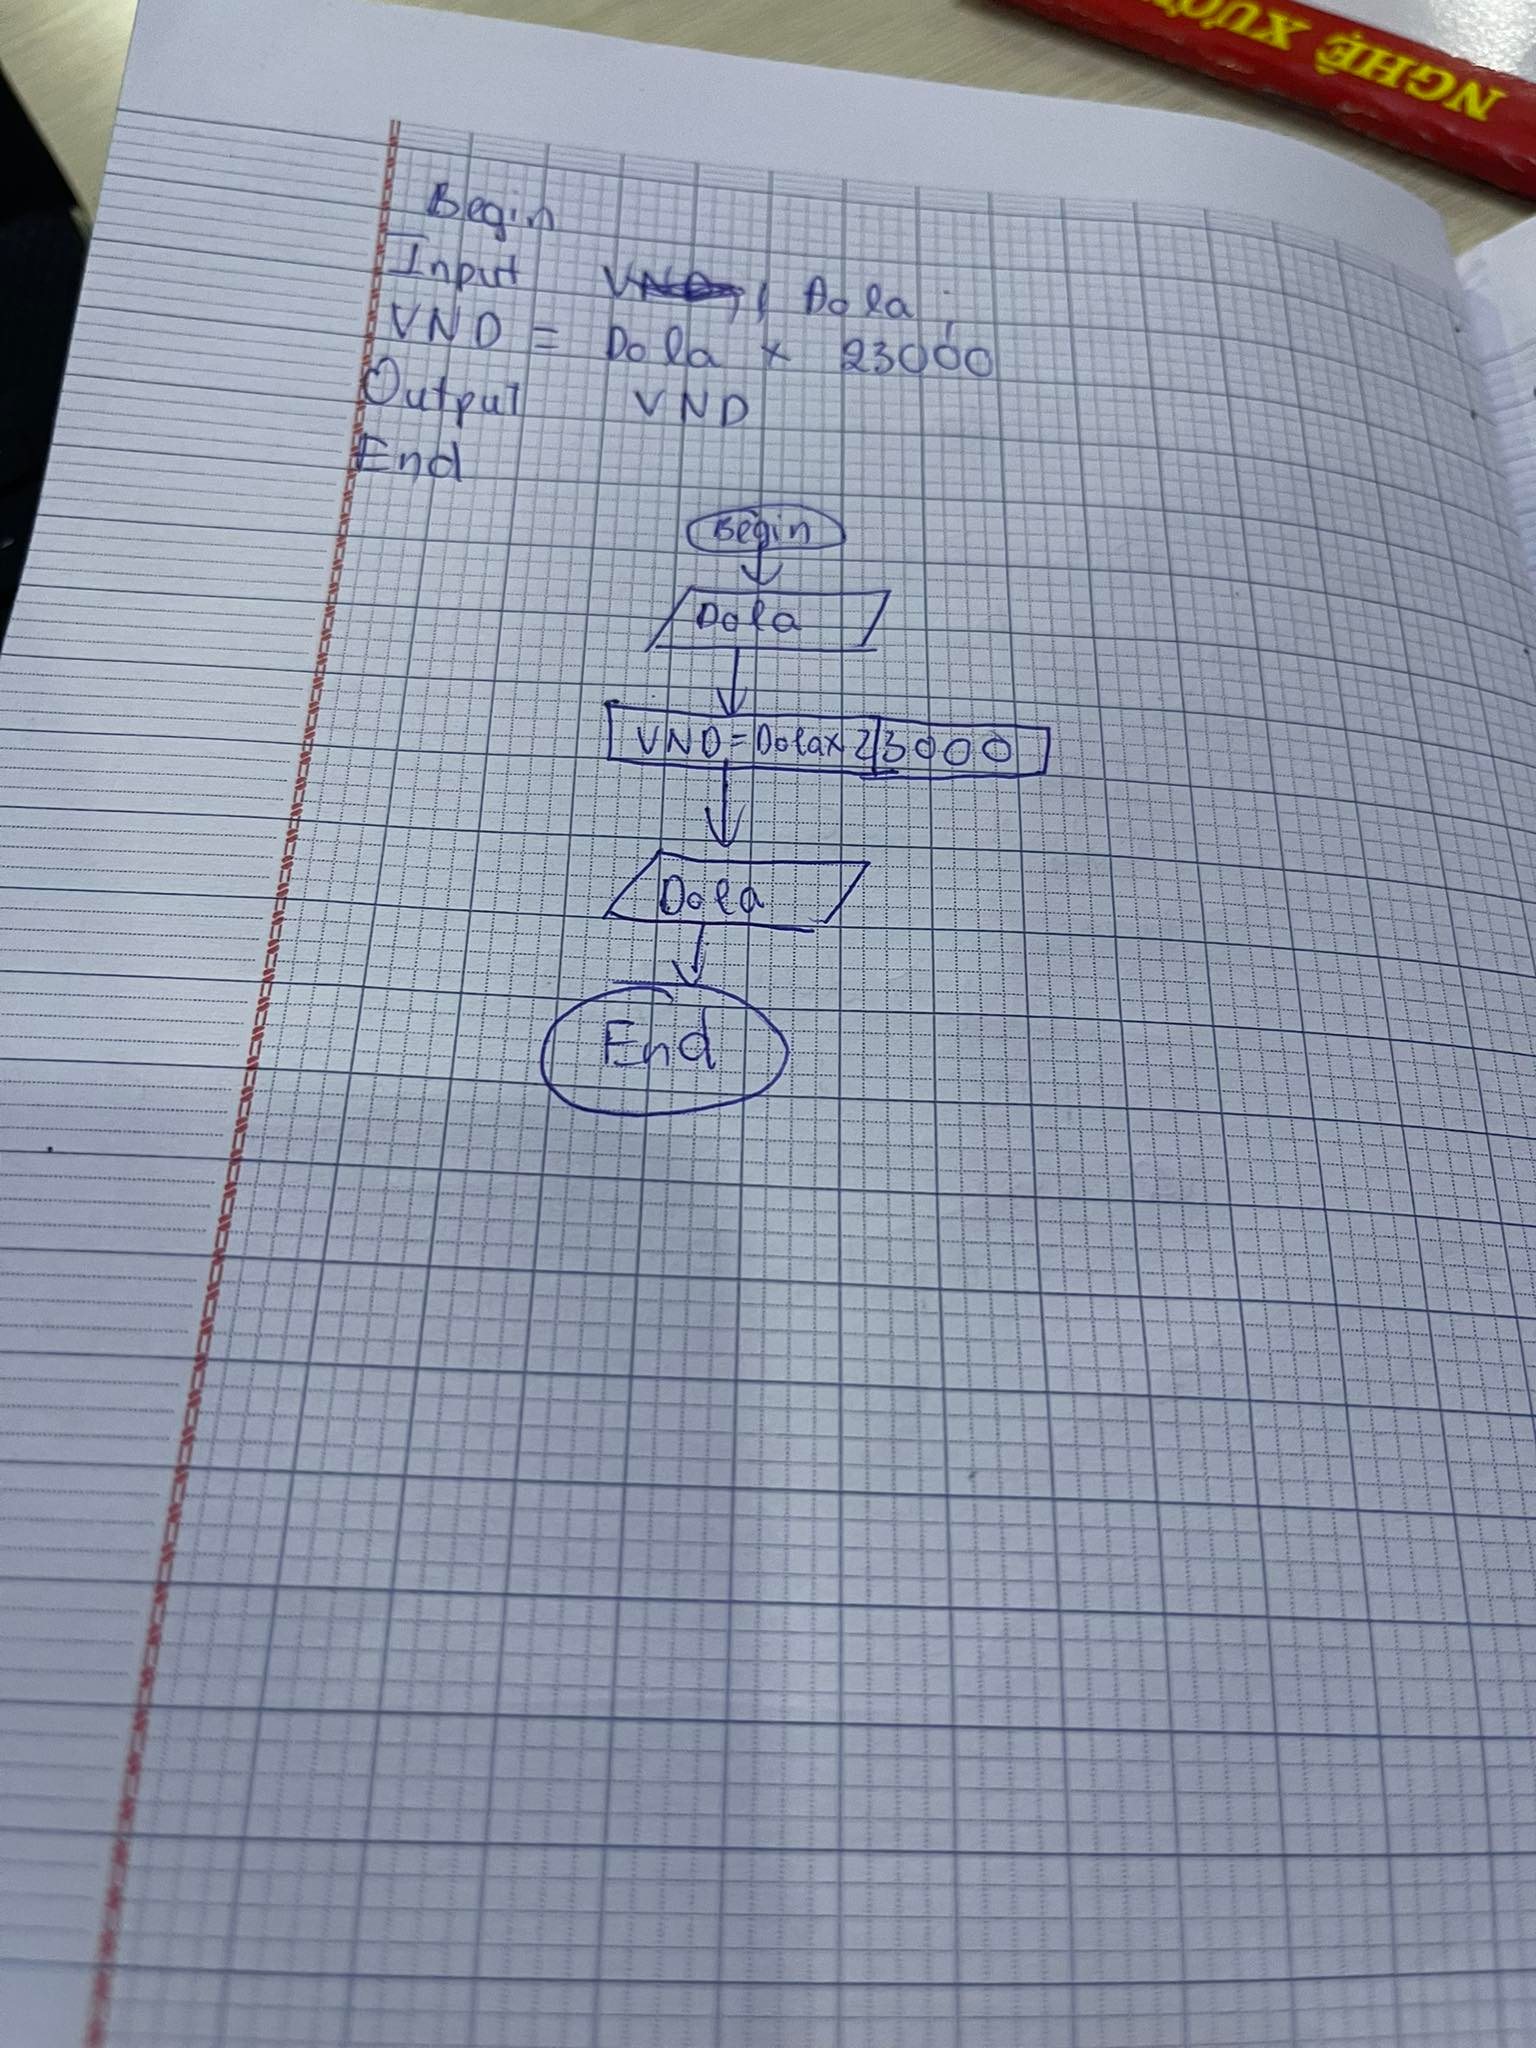 NGHỆ XƯỞ
Begin
Input , Dola ;
VND = Dola x 23000
Output VND
End
Begin
Dola
VND = Dola x 23000
Dola
End